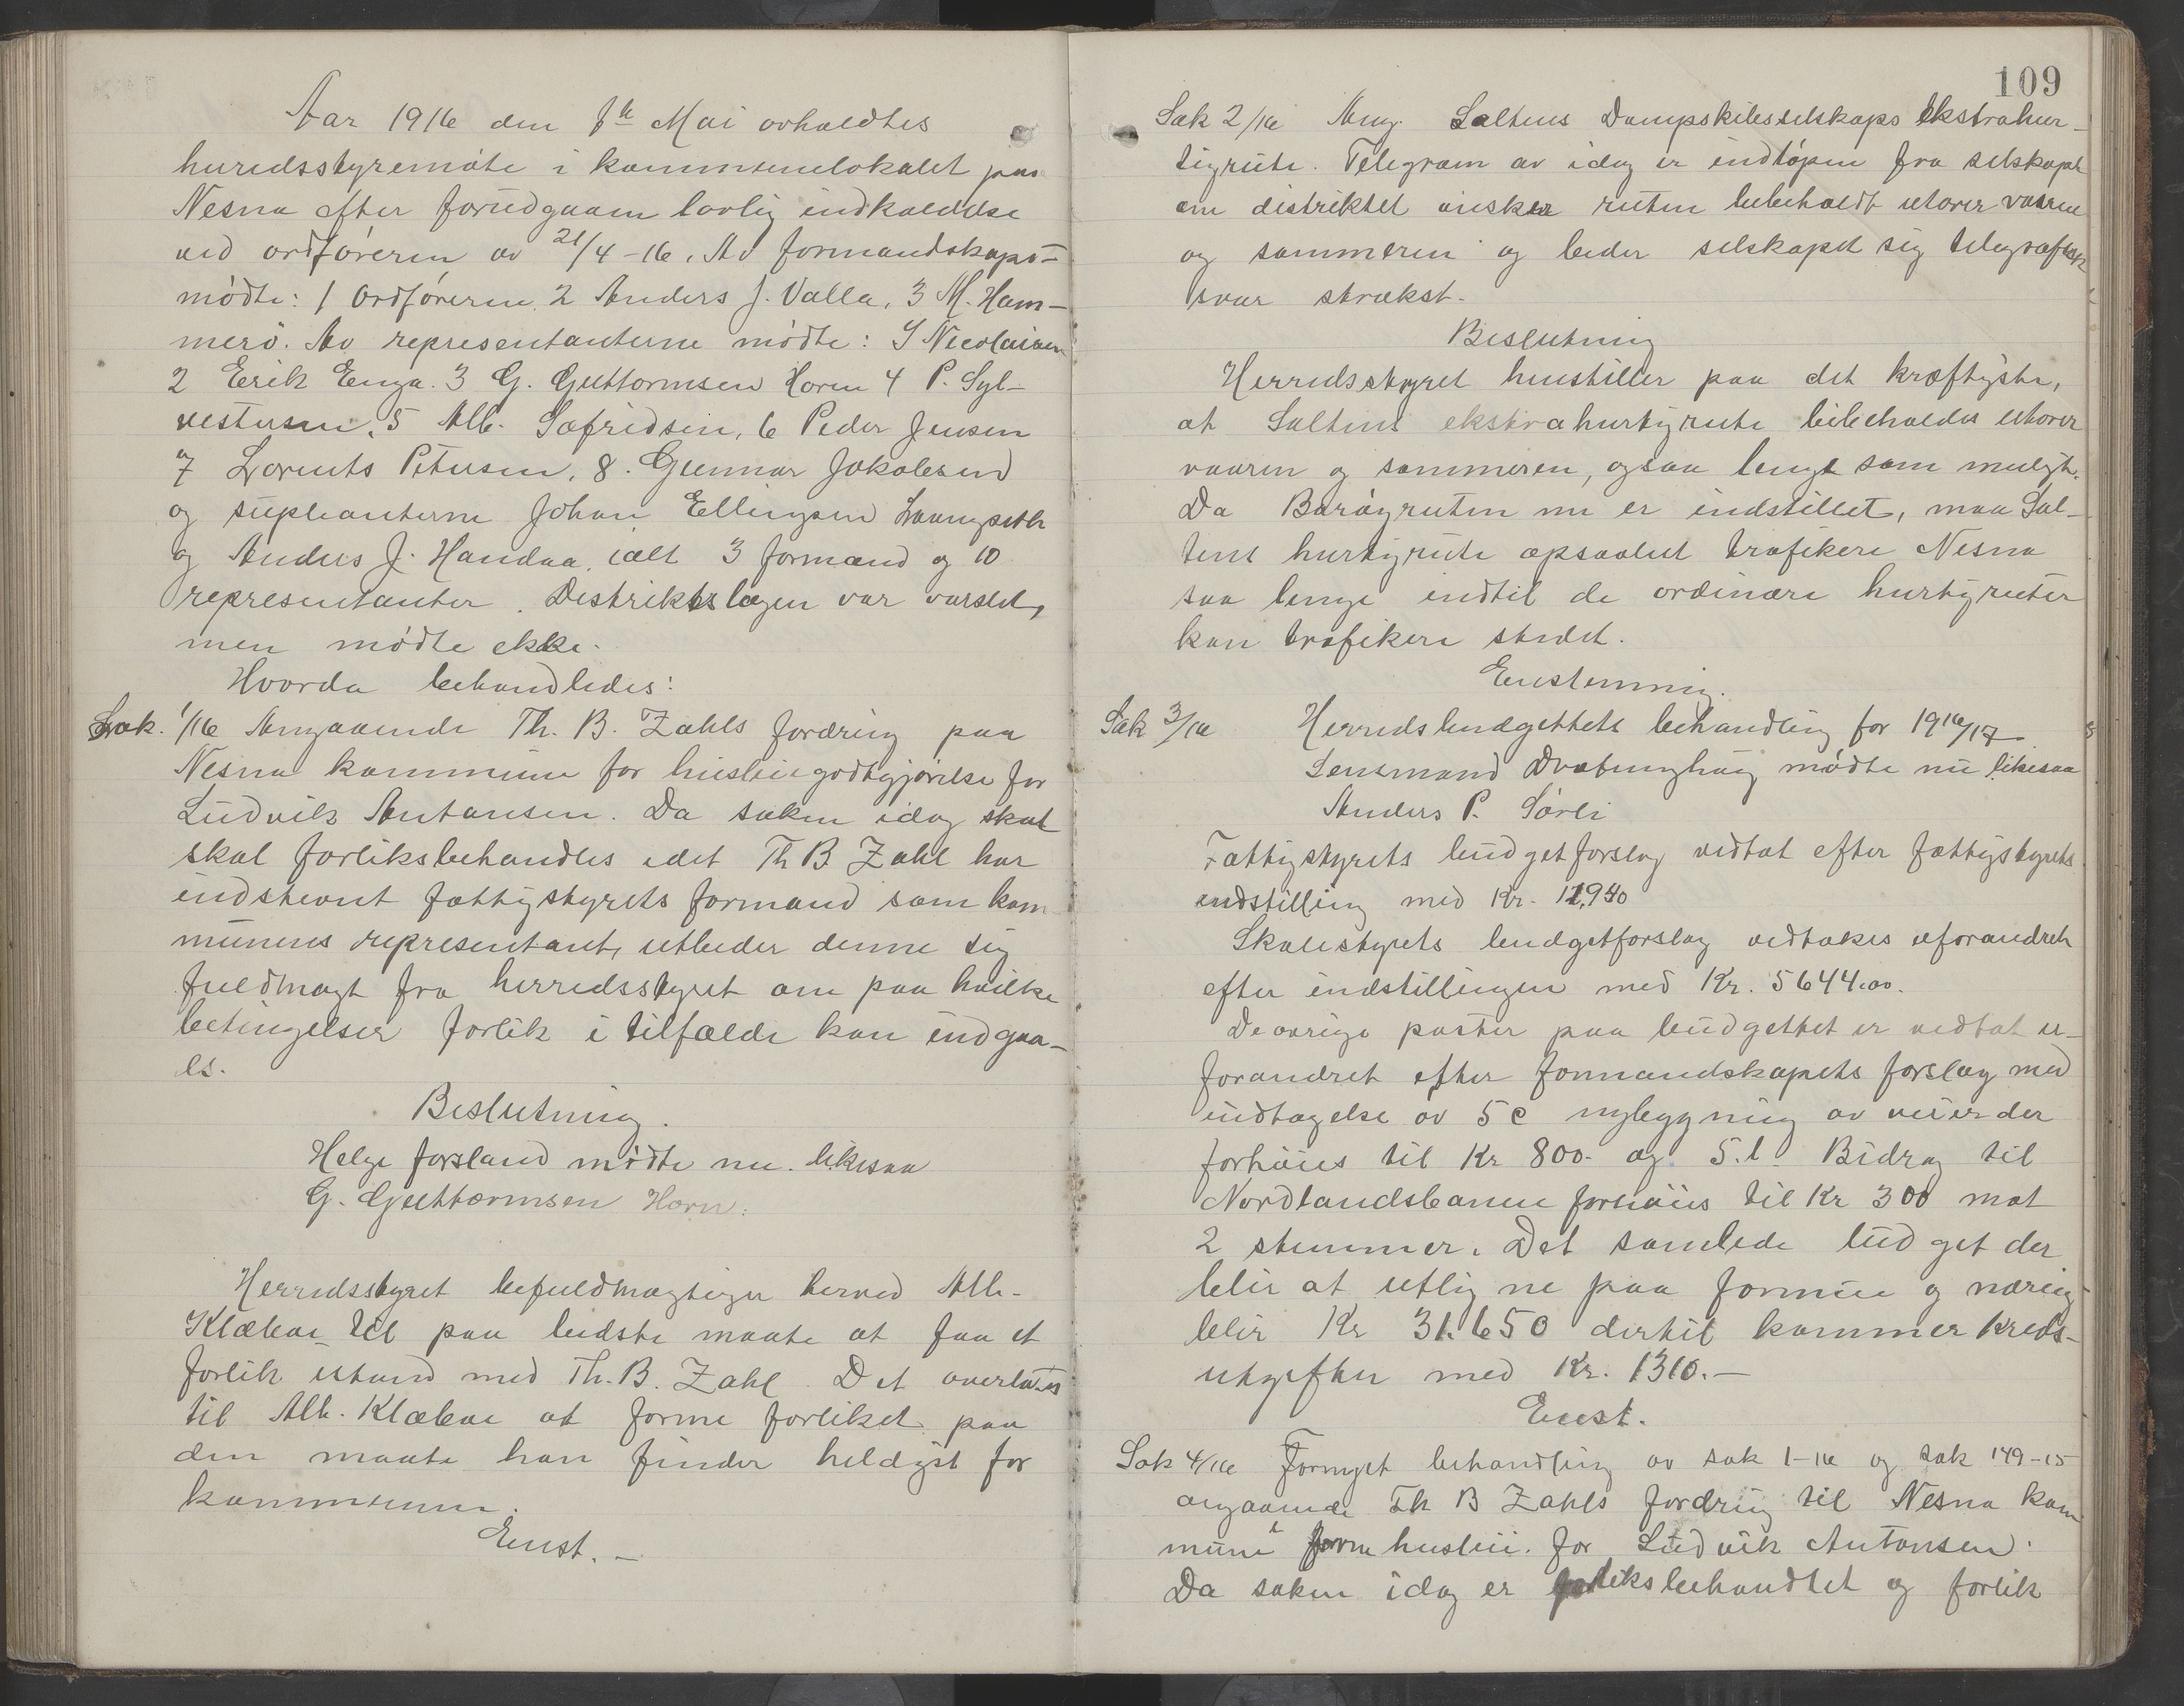 Aar 1916 den 1ste Mai avholdtes
herredsstyremöte i kommunelokalet paa
Nesna efter forudgaaen lovlig indkaldelse
ved ordföreren av 21/4-16. Av formandskapet
mödte: 1 Ordföreren. 2 Anders J. Valla. 3 M. Ham-
merö. Av representanterne mödte: Nicolaisen
2 Erik Enga. 3 G. Guttormsen Horn 4 P. Syl-
vestersen. 5 Alb. Sefridsen, 6 Peder Jensen
og
7 Lorents Petersen, 8. Gunnar Jakobsen
og supleanterne Johan Ellingsen Laangseth
og Anders J. Handaa. ialt 3 formænd og 10
representanter. Distriktslægen var varslet,
men mödte ekke.
Hvorda behandledes:
Sak. 1/16 Angaaende Th. B. Zahls fordring paa
Nesna kommune for husleiegodtgjörelse for
Ludvik Antonsen. Da saken idag skal
skal forliksbehandles idet Th B Zahl har
indstevnt fattigstyrets formand som kom
munens representant, utbeder denne sig
fuldmagt fra herredsstyret om paa hvilke
betingelser forlik i tilfælde kan indgaa-
es.
Beslutning.
Helge Forsland mödte nu. likesaa
G. Guttormsen Horn.
Herredsstyret befuldmægtiger herved Alb.
Klæboe til paa bedste maate at faa et
forlik istand med Th. B. Zahl. Det overlates
til Alb. Klæboe at forme forliket paa
den maate han finder heldigst for
kommunen.
Enst. -
109
Sak 2/16 Ang. Saltens Dampskibsselskaps Ekstrahur-
tigrute. Telegram av idag er indlöpen fra selskapet
om distriktet önsker ruten bibeholdt utover vaaren
og sommeren og beder selskapet sig telegrafisk
svar strakst.
Beslutning
Herredsstyret henstiller paa det kræftigste,
at Saltens ekstrahurtigrute bibeholdes utover
vaaren og sommeren, ogsaa lenge som muligt.
Da Baröyruten nu er indstillet, maa Sal-
tens hurtigrute opsaalet trafikere Nesna
saa lenge indtil de ordinære hurtigruter
kan trafikere stedet.
Enstemmig.
Sak 3/16 Herredsbudgettets behandling for 1916/17
Lensmand mödte nu likesaa
Anders P. Sörli
Fattigstyrets budgetforslag vedtat efter fattigstyrets
indstilling med Kr. 11.940
Skolestyrets budgetforslag vedtakes uforandret
efter indstillingen med Kr. 5644.00.
De övrige poster paa budgettet er vedtat u-
forandret efter formandskapets forslag med
undtagelse av 5 c nybygning av veier der
forhöies til Kr 800.- og 5.l. Bidrag til
Nordlandsbanen forhöies til Kr 300 mot
2 stemmer. Det samlede budget der
blir at utligne paa formue og næring
blir Kr 31.650 dertil kommer Kreds-
utgifter med Kr. 1310.-
Enst.
Sak 4/16 Fornyet behandling av sak 1-16 og sak 149-15
angaaende Th B Zahls fordring til Nesna kom
mune i form husleie. for Ludvik Antonsen.
Da saken idag er forliksbehandlet og forlik